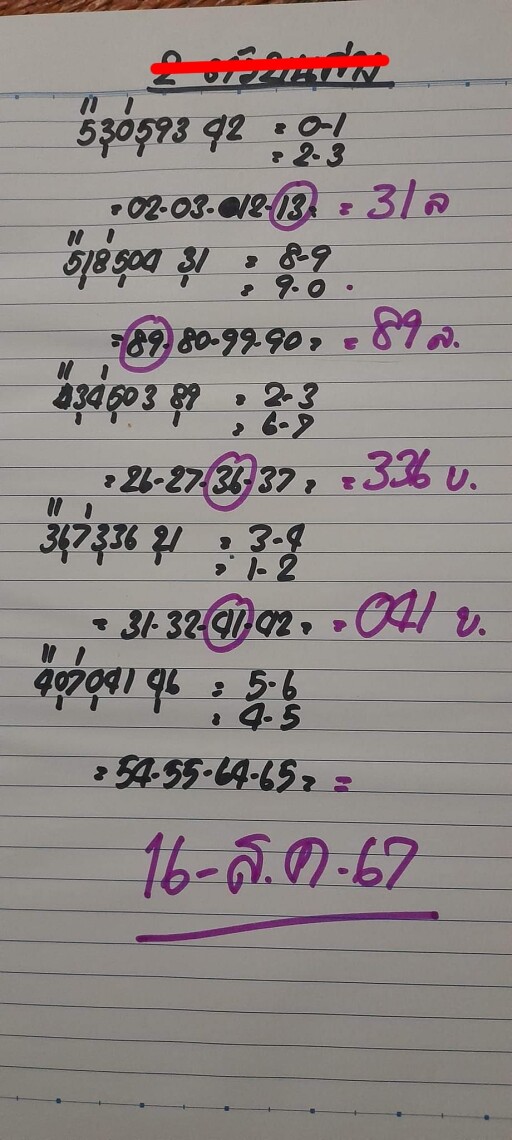 530593 42 = 0-1
= 2-3
= 02-03-12-13 = = 31 ล
518504 31 = 8-9
= 9-0
= 89-80-99-90 = = 89 ล.
434503 89 = 2-3
= 6-7
= 26-27-36-37 = = 336 บ.
367336 21 = 3-4
= 1-2
= 31-32-41-42 = = 041 บ.
407041 46 = 5-6
= 4-5
= 54-55-64-65 = =
16-ส.ค.67